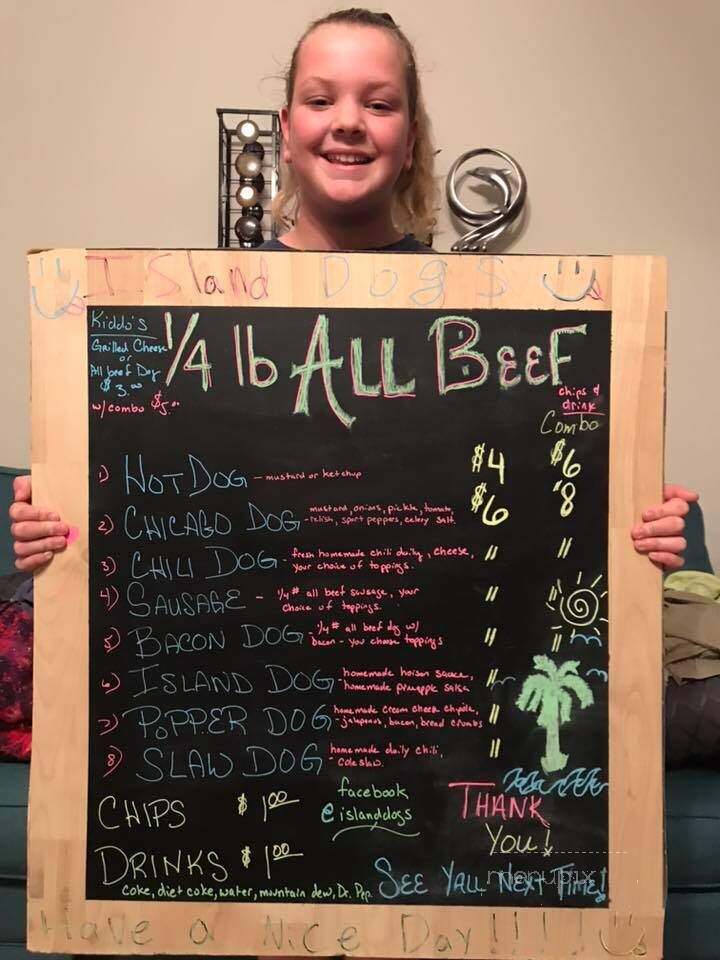 ISland DogS
Kiddo's
Grilled Cheese
or
All beef Dog
$3.00
w/combo $5.00
1/4 lb ALL BEEF
chips &
drink
Combo
1) HOT DOG - mustard or ketchup $4 $6
2) CHICAGO DOG - mustard, onions, pickle, tomato, $6 $8
relish, sport peppers, celery salt.
3) CHILI DOG - fresh homemade chili daily, cheese, " "
your choice of toppings.
4) SAUSAGE - 1/4 # all beef sausage, your "
choice of toppings.
5) BACON DOG - 1/4 # all beef dog w/ " "
bacon - you choose toppings
6) ISLAND DOG - homemade hoison sauce, "
homemade pineapple salsa
7) POPPER DOG - homemade cream cheese chipotle, "
jalapenos, bacon, bread crumbs
8) SLAW DOG - homemade daily chili, "
coleslaw.
CHIPS $1.00
facebook
@islanddogs
THANK
YOU!
DRINKS $1.00
coke, diet coke, water, mountain dew, Dr. Pep.
SEE YALL NEXT TIME!
menupix
Have a Nice Day!!!!!